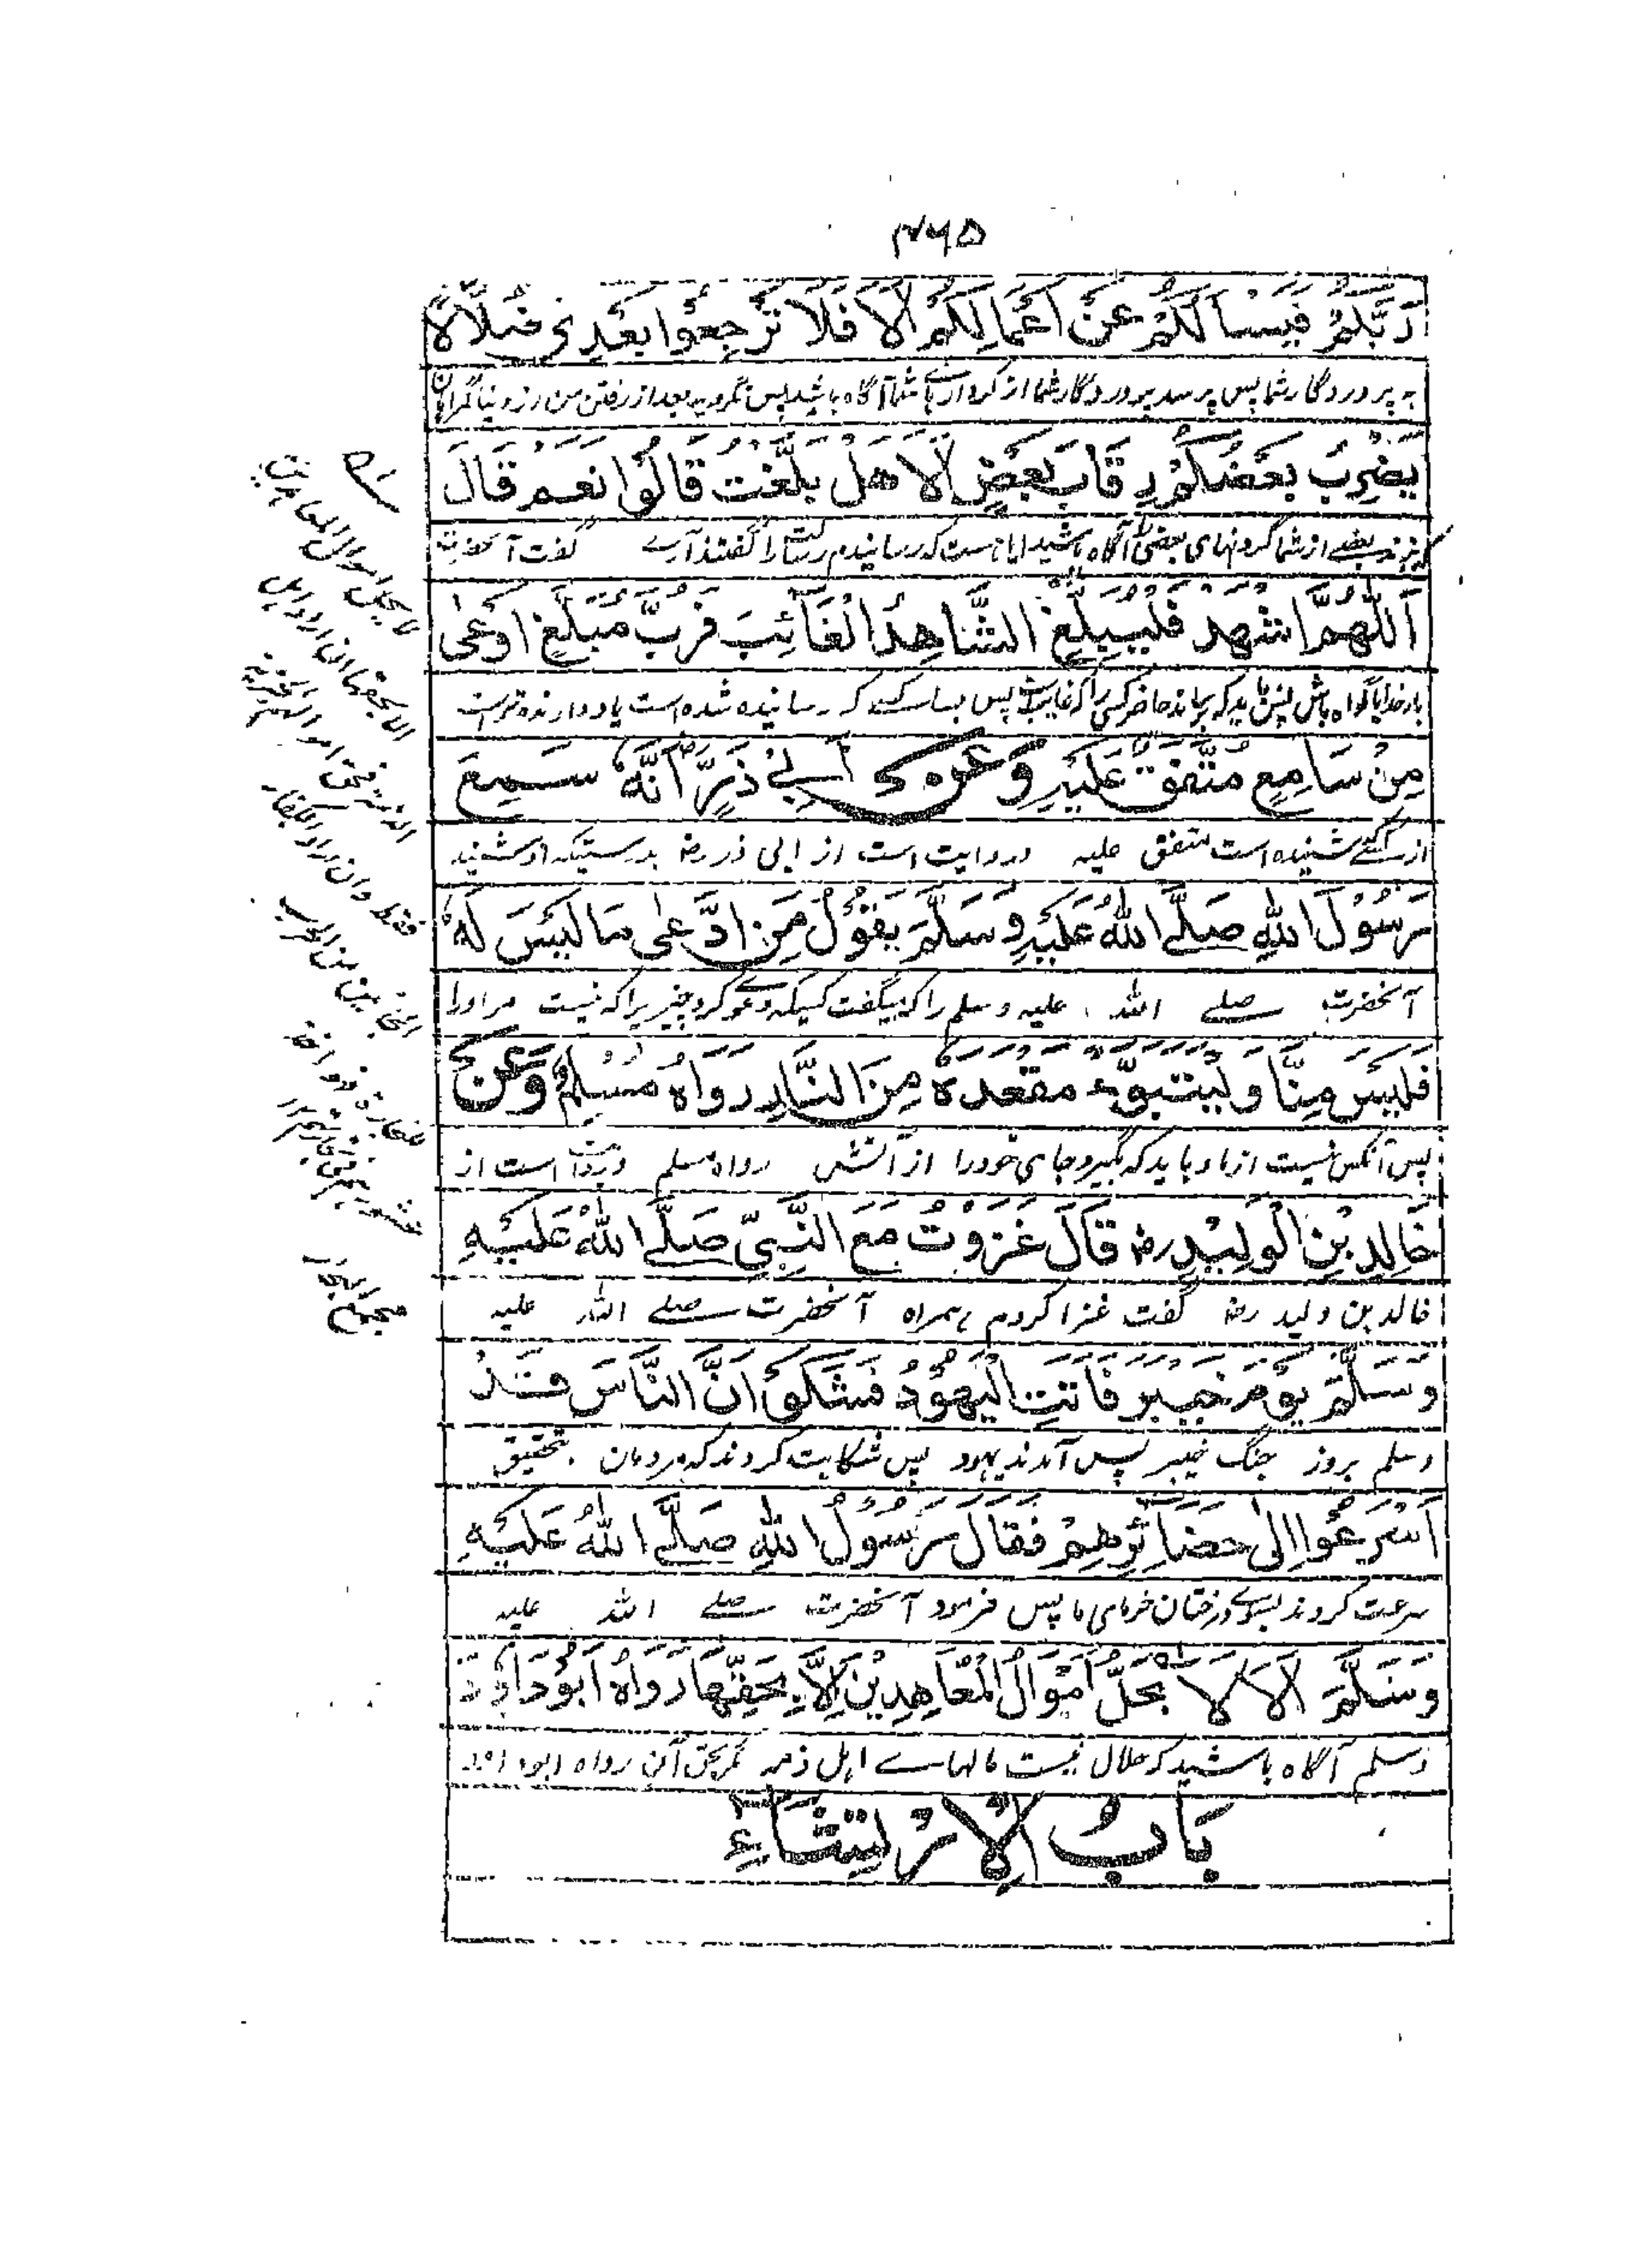 ۴۶۵
رَبَّكُمْ فَيَسْأَلُكُمْ عَنْ اَعْمَالِكُمْ اَلَا فَلَا تَرْجِعُوْا بَعْدِيْ ضُلَّالًا
به پروردگار شما پس پرسد پروردگار شما از کردارهای شما آگاه باشید پس نگردید بعد از رفتن من از دنیا گمراهان
يَضْرِبُ بَعْضُكُمْ رِقَابَ بَعْضٍ اَلَا هَلْ بَلَّغْتُ قَالُوْا نَعَمْ قَالَ
که بزند بعضے از شما گردنهای بعضی را آگاه باشید ایا هست که رسانیدم رسالت را گفتند آرے گفت آنحضرت
اَللّٰهُمَّ اشْهَدْ فَلْيُبَلِّغِ الشَّاهِدُ الْغَائِبَ فَرُبَّ مُبَلَّغٍ اَوْعٰى
بار خدایا گواه باش پس باید که برساند حاضر کسی را که غایب است پس بسا کسے که رسانیده شده است یاد دارنده تر است
مِنْ سَامِعٍ مُتَّفَقٌ عَلَيْهِ وَعَنْ اَبِيْ ذَرٍّ اَنَّهٗ سَمِعَ
از کسے شنیده است متفق علیه و روایت است از ابی ذر رضا بدرستیکه او شنید
رَسُوْلَ اللّٰهِ صَلَّے اللّٰهُ عَلَيْهِ وَسَلَّمَ يَقُوْلُ مَنِ ادَّعٰى مَا لَيْسَ لَهٗ
آنحضرت صلے الله علیه و سلم را که میگفت کسیکه دعوے کرد چیزیرا که نیست مر اورا
فَلَيْسَ مِنَّا وَلْيَتَبَوَّءْ مَقْعَدَهٗ مِنَ النَّارِ رَوَاهُ مُسْلِمٌ وَعَنْ
پس آنکس نیست از ما و باید که بگیرد جای خود را از آتش رواه مسلم و روایت است از
خَالِدِ بْنِ الْوَلِيْدِ رضـ قَالَ غَزَوْتُ مَعَ النَّبِيِّ صَلَّے اللّٰهُ عَلَيْهِ
خالد بن ولید رضـ گفت غزا کردم همراه آنحضرت صلے الله علیه
وَسَلَّمَ يَوْمَ خَيْبَرَ فَاَتَتِ الْيَهُوْدُ فَشَكَوْا اَنَّ النَّاسَ قَدْ
وسلم بروز جنگ خیبر پس آمدند یهود پس شکایت کردند که مردمان بتحقیق
اَسْرَعُوْا اِلٰى حَضَائِرِهِمْ فَقَالَ رَسُوْلُ اللّٰهِ صَلَّے اللّٰهُ عَلَيْهِ
سرعت کردند بسوے درختان خرمای ما پس فرمود آنحضرت صلے الله علیه
وَسَلَّمَ اَلَا لَا يَحِلُّ اَمْوَالُ الْمُعَاهِدِيْنَ اِلَّا بِحَقِّهَا رَوَاهُ اَبُوْدَاوُدَ
وسلم آگاه باشید که حلال نیست مالهاے اهل ذمه مگر بحق آن رواه ابوداود
بَابُ الْاِرْتِشَاءِ
لا یحل اموال المعاهدین
الا بحقها
مجمع البحار